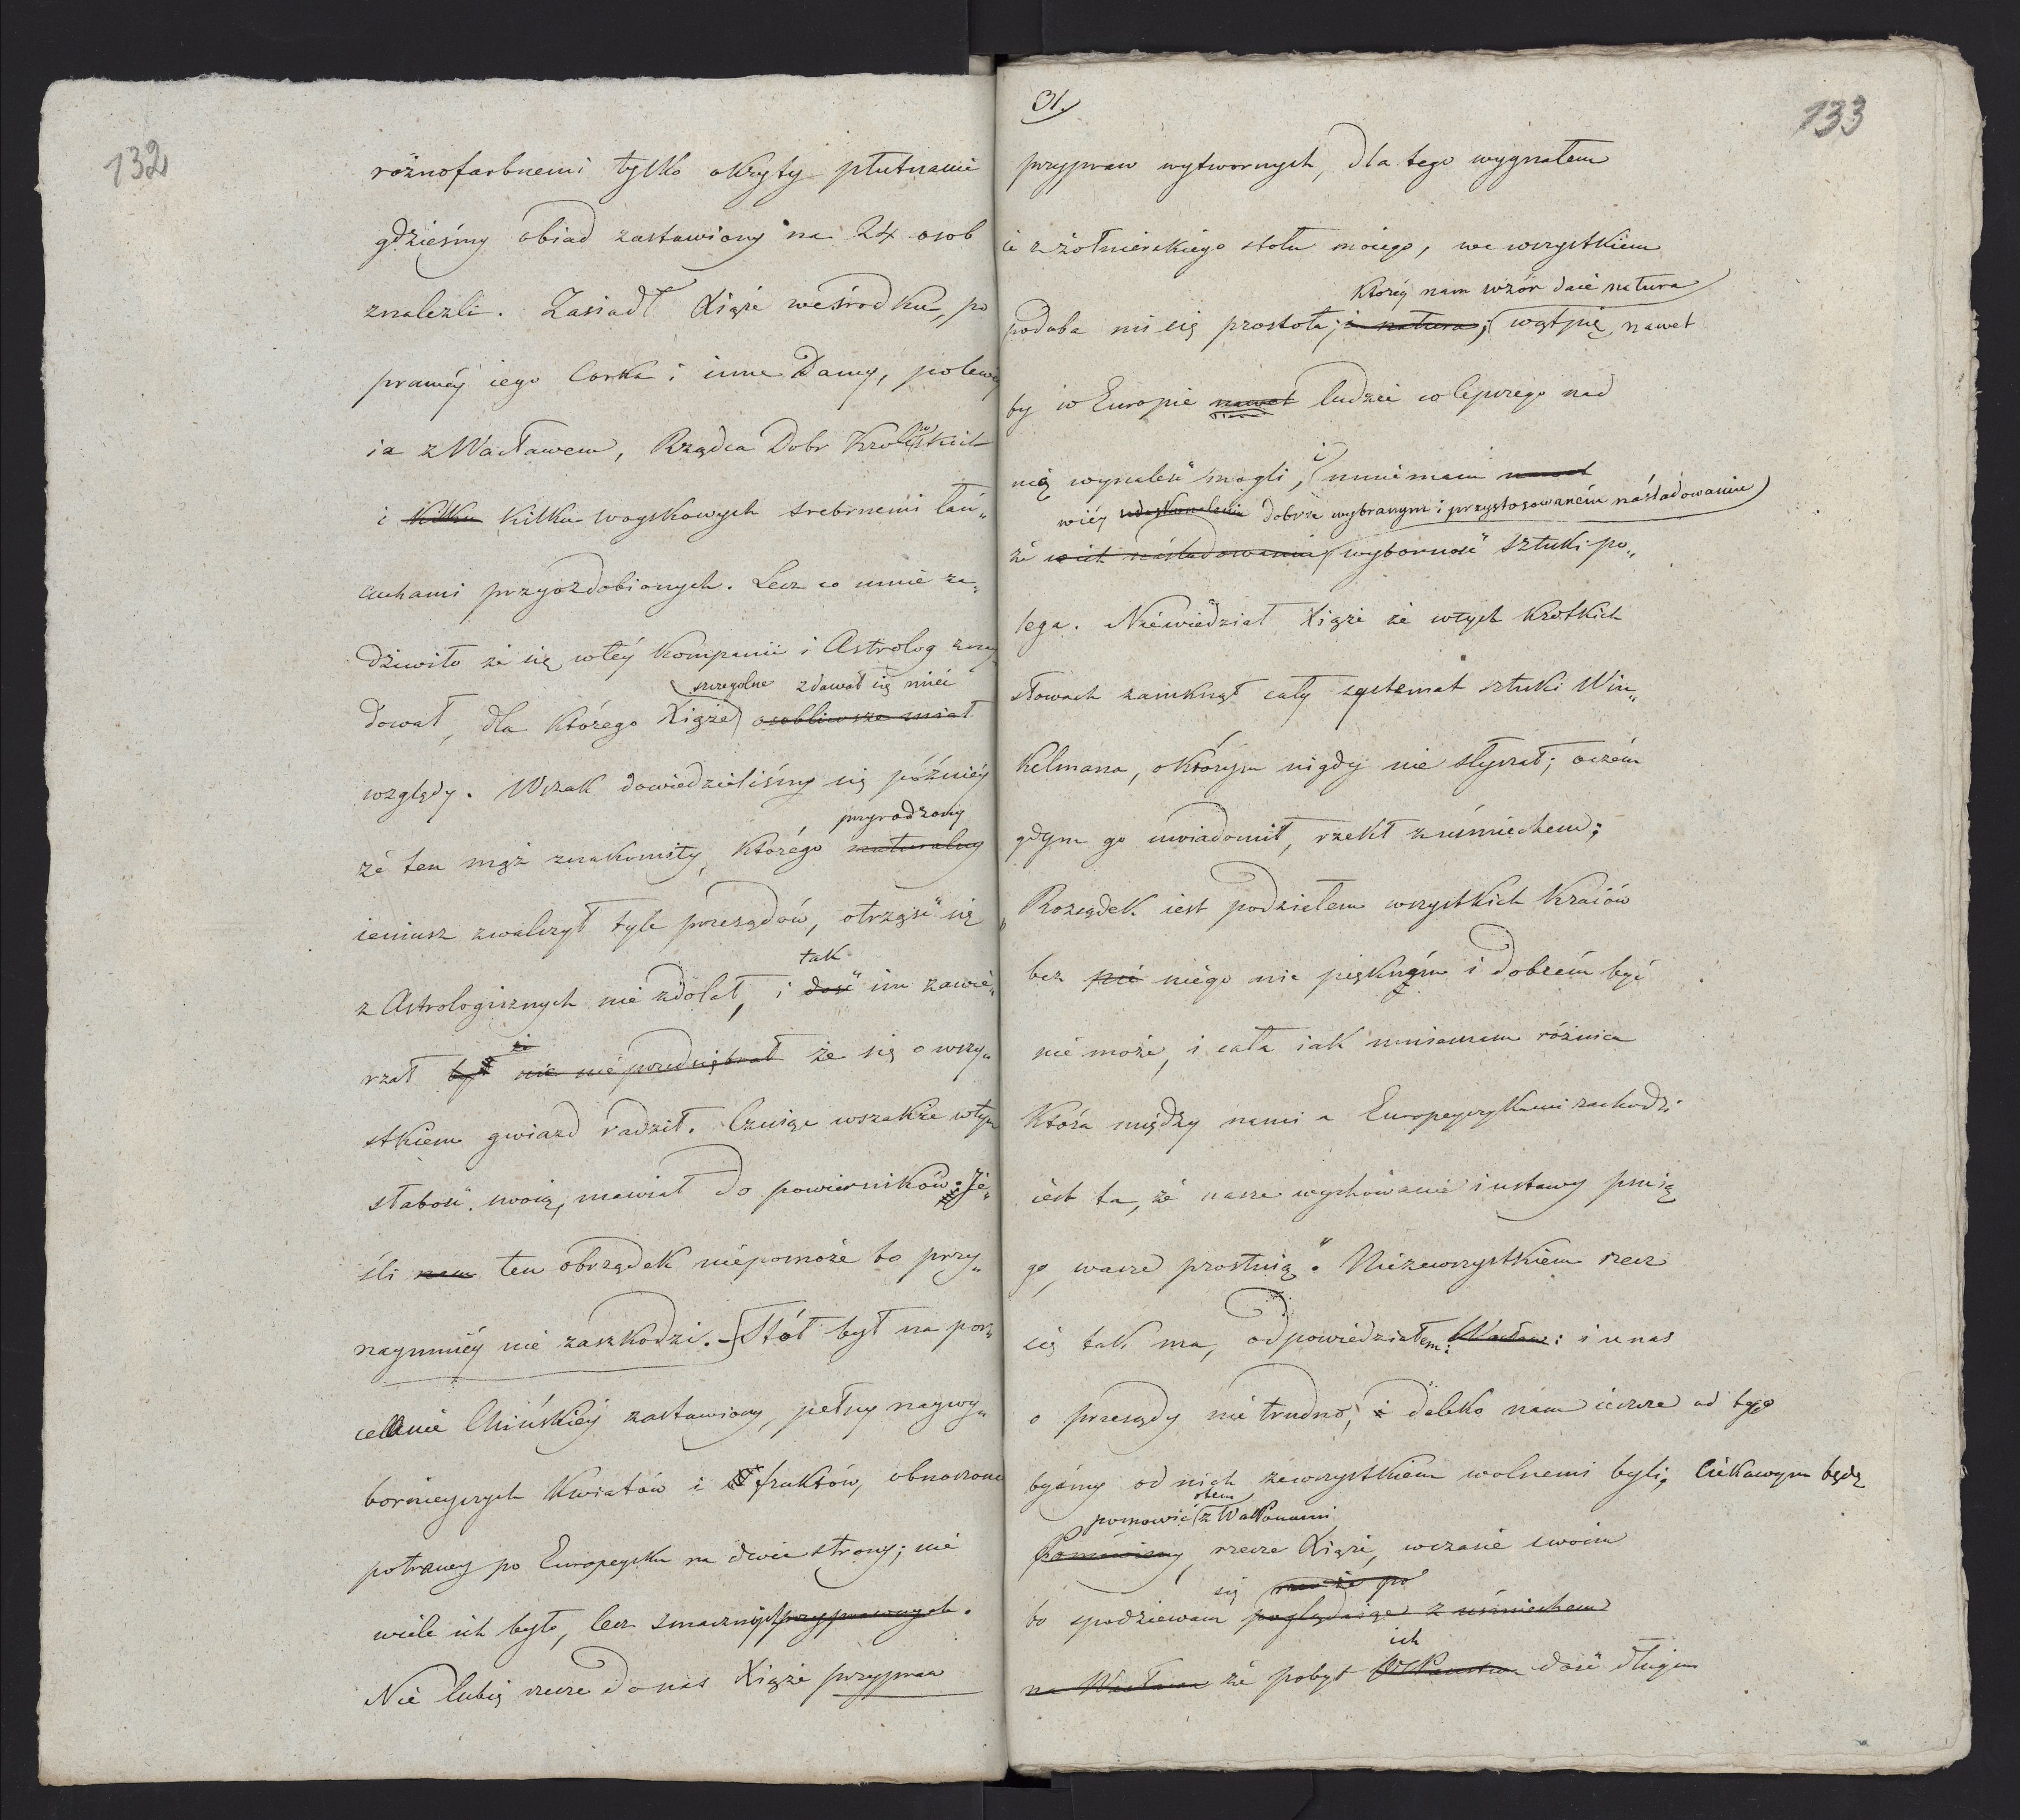 132
różnofarbnemi tylko okryty płutnami
gdzieśmy obiad zastawiony na 24 osob
znalezli. Zasiadł Xiąże weśrodku, po
prawéy iego Corka i inne Damy, polewéy
ia z Wacławem, Rządca Dobr Krolewskich
i kilku kilku woyskowych srebrnemi łań„
cuchami przyozdobionych. Lecz co mnie za„
dziwiło że się wtéy kompanii i Astrolog znay
szczegolne zdawał się mieć
dował, dla którego Xiąże osobliwsze miał
względy. Wszak dowiedzieliśmy się późniéy
przyrodzony
że ten mąż znakomity, którégo naturalny
ieniusz zwalczył tyle przesądów, otrząść się
tak
z Astrologicznych nie zdołał, i dość im zawie„
rzał nic nie przedsiębrał że się o wszy„
stkiem gwiazd radził. Czuiąc wszakże wtym
słabość swoią, mawiał do powierników: Je„
śli nam ten obrządek niepomoże to przy„
naymniéy nie zaszkodzi. – Stół był na por„
cellanie Chińskiéy zastawiony, pełny naywy„
bornieyszych kwiatów i fruktów, obnoszono
potrawy po Europeysku na dwie strony; nie
wiele ich było, lecz smacznych przyprawnych.
Nie lubię rzecze do nas Xiąże przypraw
31.
133
przypraw wytwornych, dla tego wygnałem
ie z żołnierskiego stołu moiego, we wszystkiem
któréy nam wzór daie natura
podoba mi się prostota; i natura; wątpię nawet
by w Europie nawet ludzie co lepszego nad
i
nię wynaleść mogli, mniemam nawet
wiéy udoskonalenie dobrze wybranym i przystosowaném naśladowaniu
że w ich naśladowaniu wyborność sztuki po„
lega. Niewiedział Xiąże że wtych krotkich
słowach zamknął cały systemat sztuki Win„
kelmana, októrym nigdy nie słyszał; oczém
gdym go uwiadomił, rzekł z uśmiechem;
„Rozsądek iest podziałem wszystkich kraiów
bez nie niego nic pięknym i dobrém być
nie może, i cała iak mniemam różnica
która między nami a Europeyczykami zachodzi
iest ta, że nasze wychowanie i ustawy psuią
go, wasze prostuią". Niezewszystkiem rzecz
się tak ma, odpowiedziałem: Wacław: i u nas
o przesądy nie trudno, i daleko nam ieszcze od tego
byśmy od nich zewszystkiem wolnemi byli, Ciekawym będę
pomowić otem z WaPanami
Pomówimy, rzecze Xiąże, wczasie swoim
się rzecze po
bo spodziewam poglądaiąc z uśmiechem
ich
na Wacława że pobyt WPaństwa dość długim